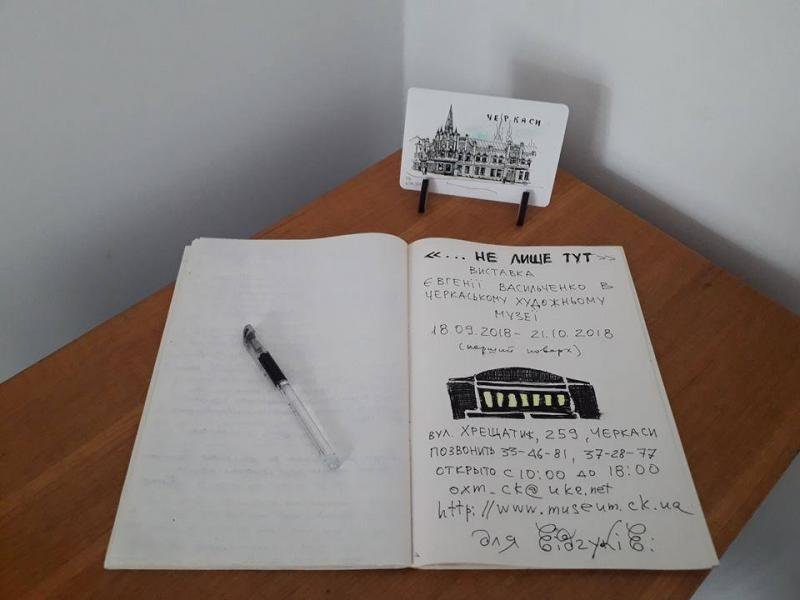 ЧЕРКАСИ
«... НЕ ЛИШЕ ТУТ»
ВИСТАВКА
ЄВГЕНІЇ ВАСИЛЬЧЕНКО В
ЧЕРКАСЬКОМУ ХУДОЖНЬОМУ
МУЗЕЇ
18.09.2018 - 21.10.2018
(перший поверх)
ВУЛ. ХРЕЩАТИК, 259, ЧЕРКАСИ
ПОЗВОНИТЬ 33-46-81, 37-28-77
ОТКРЫТО С 10:00 ДО 18:00
oxm_ck@uke.net
http://www.museum.ck.ua
для Відгуків: